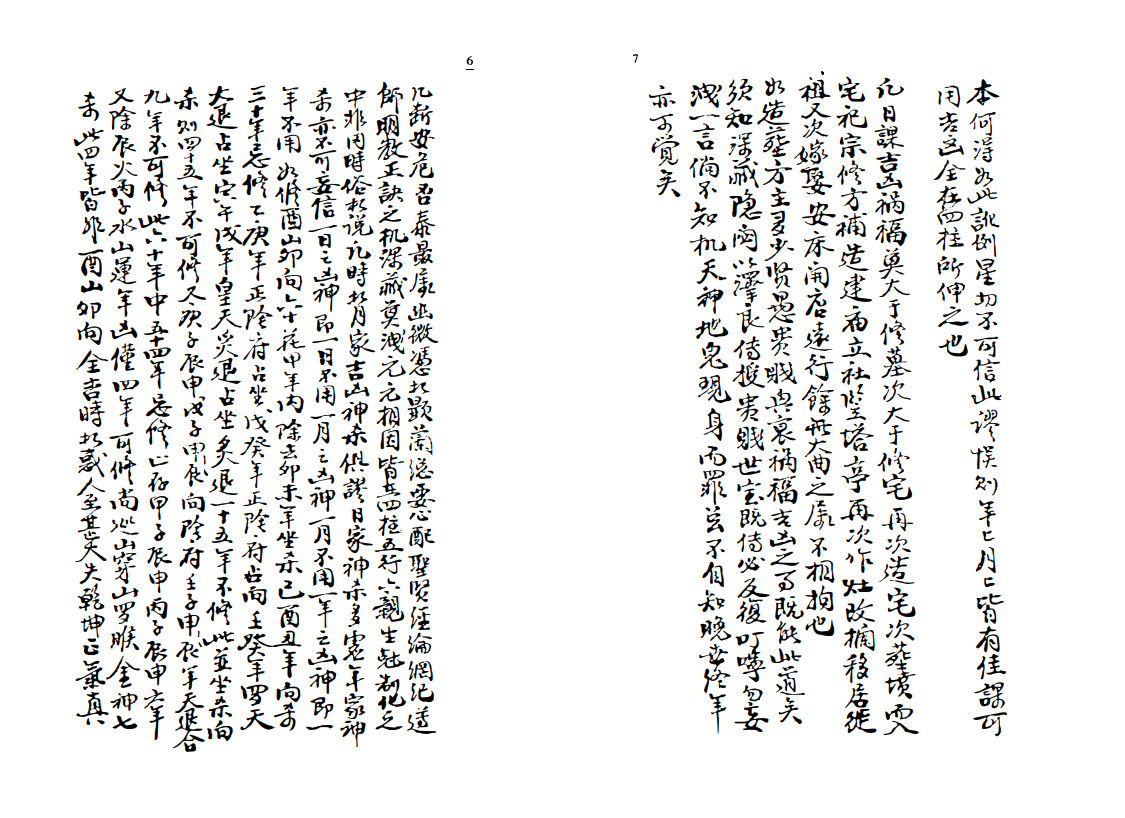 6
凡断安危召泰最属幽微憑求顕蘭総要心配聖賢経論綱紀遠
師明教正訣之机深藏莫洩元元相因皆从四柱五行六親生尅制化之
中非用時俗求說凡時皆月家吉凶神杀俱謬日家神杀多虚年家神
杀亦不可妄信一日之凶神即一日不用一月之凶神一月不用一年之凶神即一
年不用如修酉山卯向六十花甲年内除去卯未年坐杀巳酉丑年向杀
三十年忌修乙庚年正陰府占坐戊癸年正陰府占向壬癸年四天
大退占坐寅午戌年皇天炙退占坐炙退一十五年不修此並坐杀向
杀则四十五年不可修又庚子辰申戊子申辰向陰府壬子申辰年天退合
九年不可修此六十年中五十四年忌修止存甲子辰申丙子辰申六年
又除辰火丙子水山運年凶僅四年可修尚巡山穿山罗睺金神七
杀此四年皆非酉山卯向全吉時求惑人至其大失乾坤正氣真八
7
本何得如此訛例星切不可信此謬悮则年七月亡皆有佳課可
用吉凶全在四柱所伸之也
凡日課吉凶祸福莫大于修墓次大于修宅再次造宅次葬墳四入
宅祀宗修方補造建庙立社竪塔亭再次作灶改搁移居徙
祖又次嫁娶安床開店遠行餘無大曲之属不相拘也
如造葬方主多少賢愚贵賤與衰祸福吉凶之る既能此道矣
須知深藏隐闷以擇良侍授贵賤世宝既侍必反復叮嚀勿妄
洩一言倘不知机天神地鬼现身而罪豈不自知晚世終年
亦可覚矣